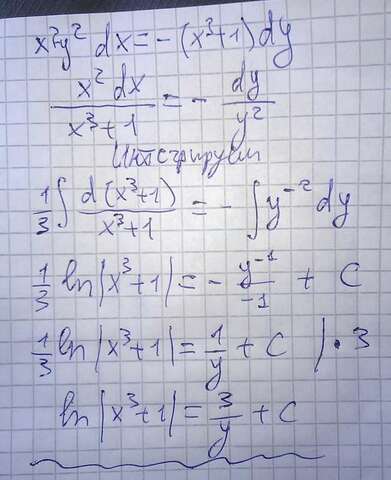 x²y² dx = - (x³+1) dy
x² dx / x³+1 = - dy / y²
Интегрируем
1/3 ∫ d(x³+1) / x³+1 = - ∫ y⁻² dy
1/3 ln|x³+1| = - y⁻¹ / -1 + C
1/3 ln|x³+1| = 1/y + C | · 3
ln|x³+1| = 3/y + C